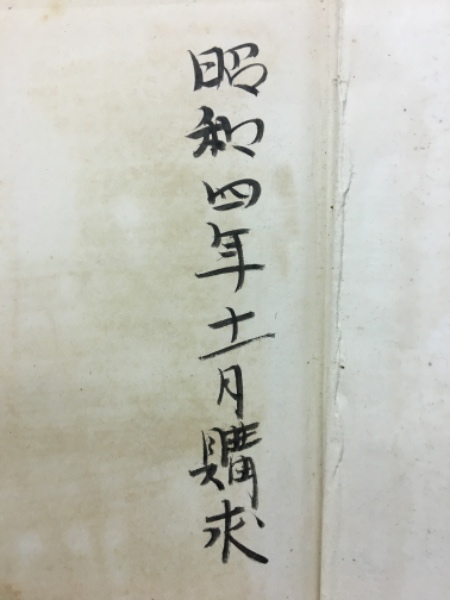 昭和四年十一月購求